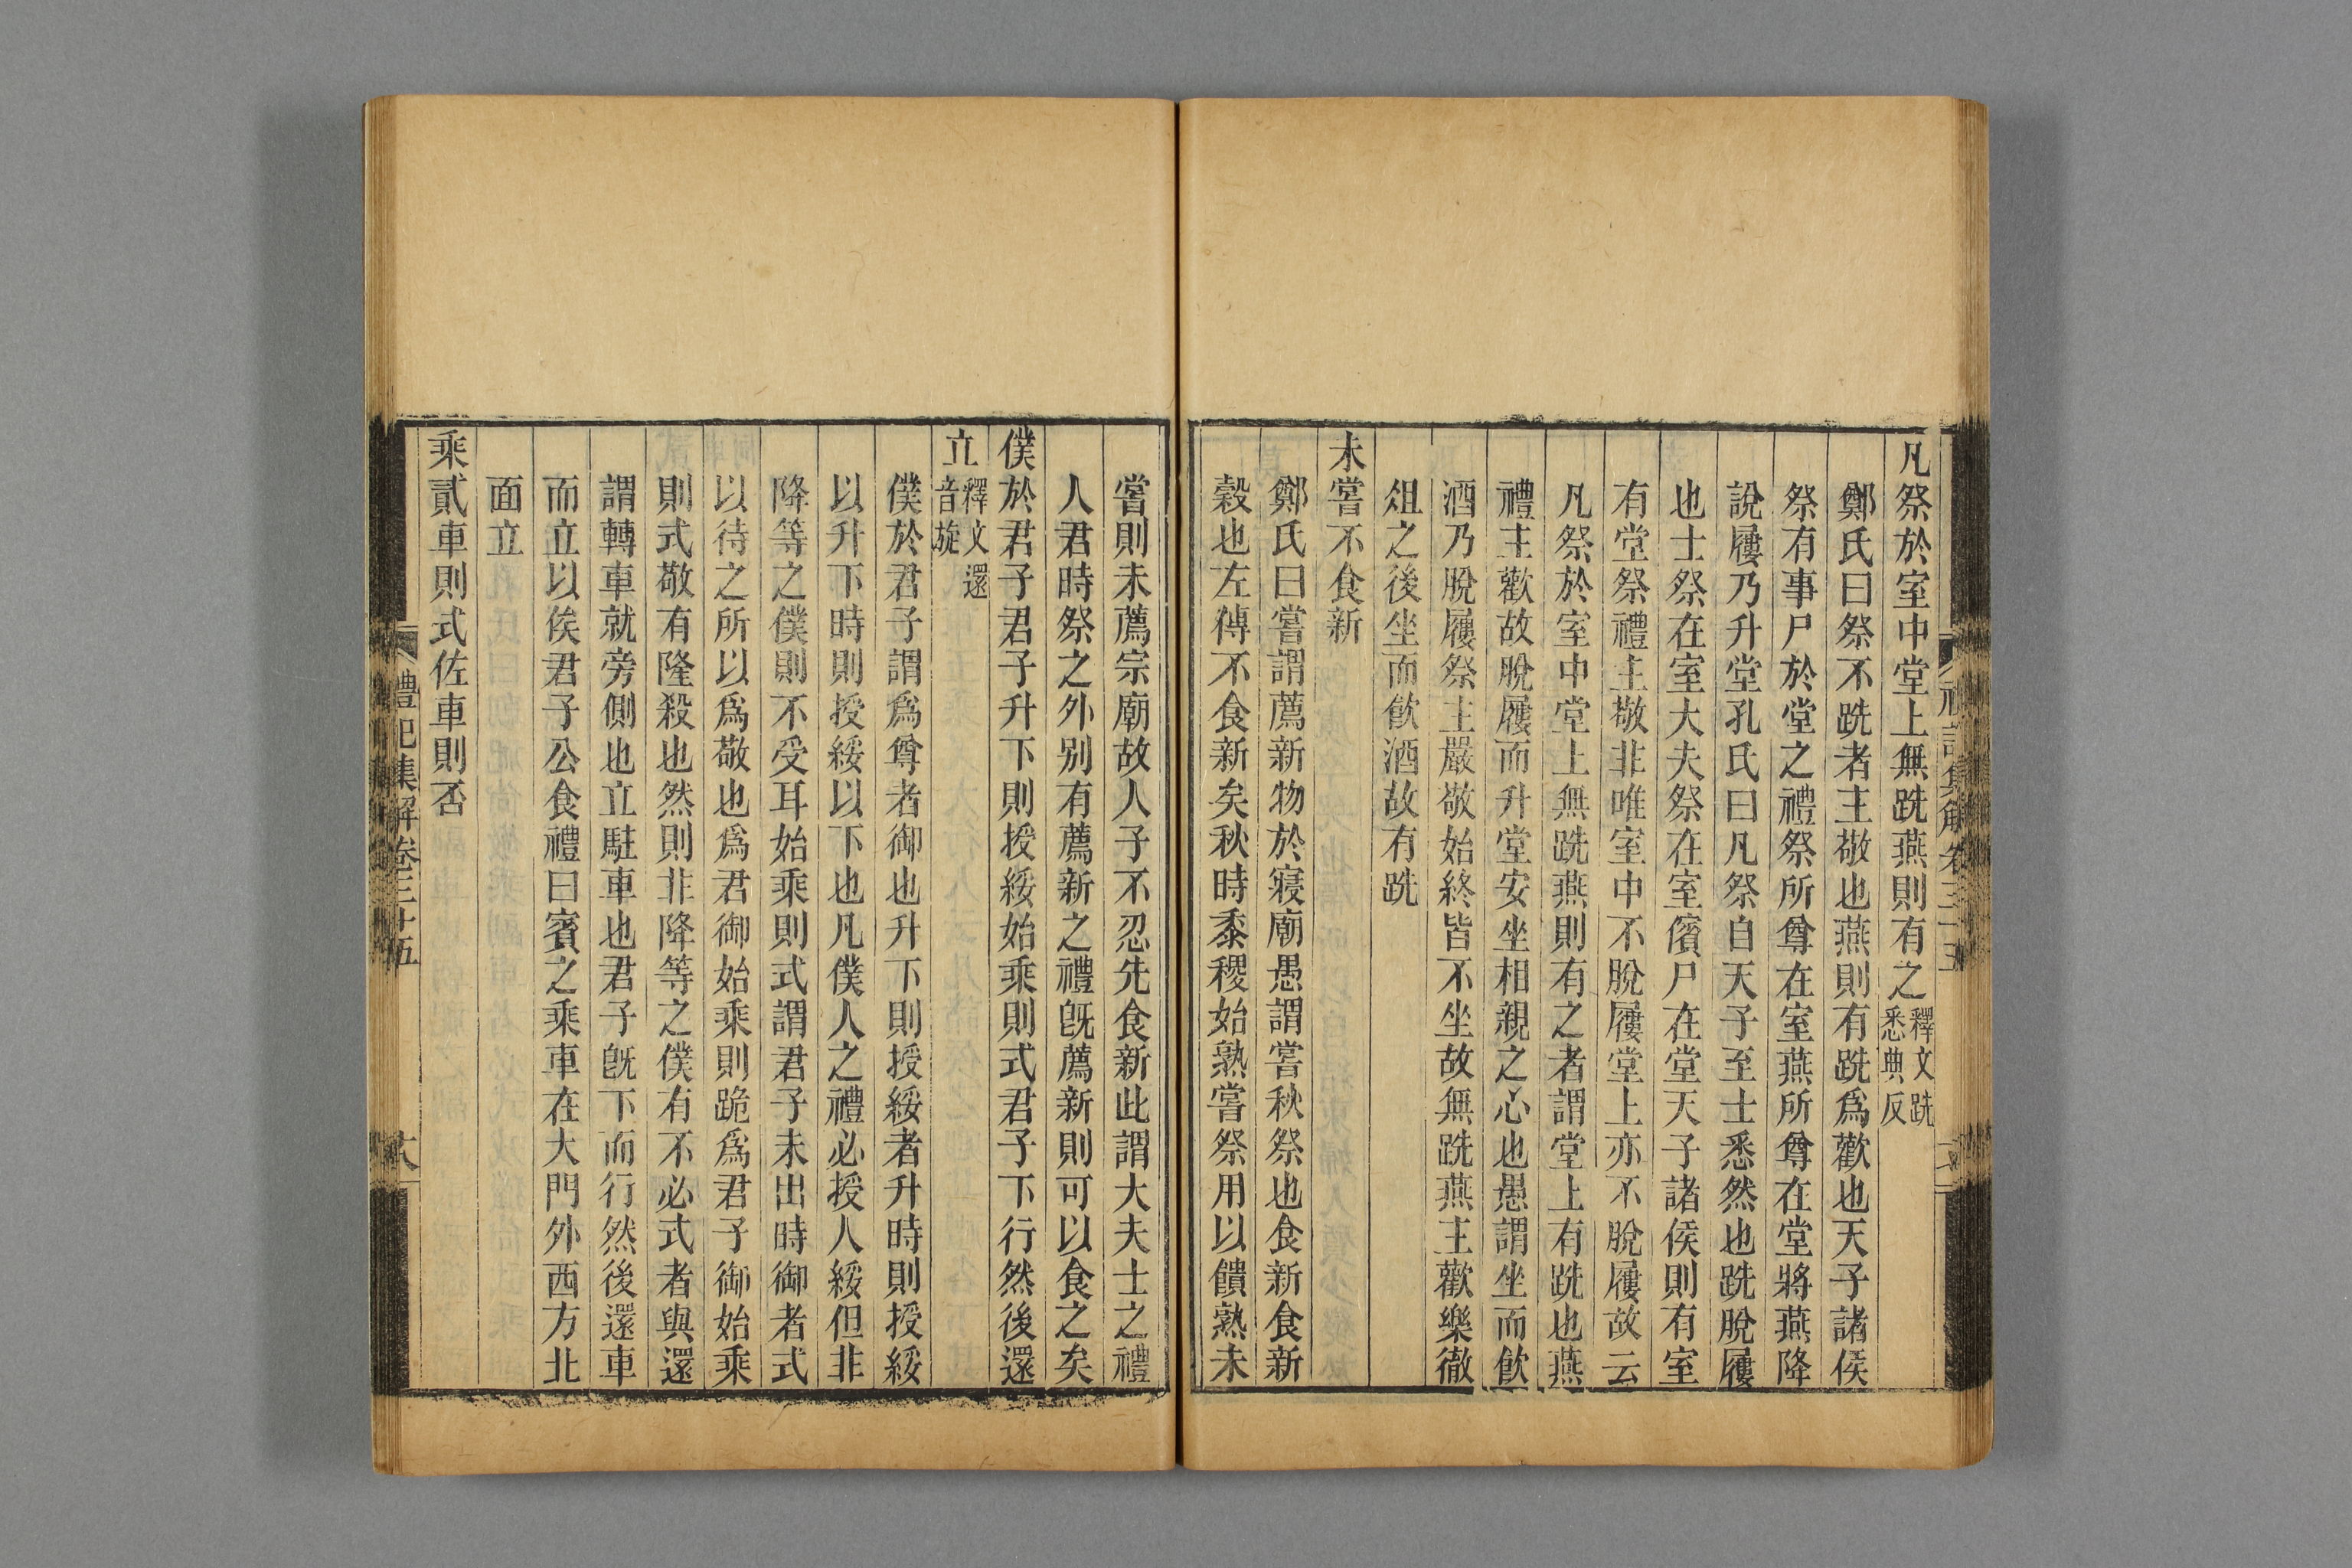 凡祭於室中堂上無跣燕則有之釋文跣悉典反
鄭氏曰祭不跣者主敬也燕則有跣爲歡也天子諸侯
祭有事尸於堂之禮祭所尊在室燕所尊在堂將燕降
說屨乃升堂孔氏曰凡祭自天子至士悉然也跣脫屨
也士祭在室大夫祭在室儐尸在堂天子諸侯則有室
有堂祭禮主敬非唯室中不脫屨堂上亦不脫屨故云
凡祭於室中堂上無跣燕則有之者謂堂上有跣也燕
禮主歡故脫屨而升堂安坐相親之心也愚謂坐而飮
酒乃脫屨祭主嚴敬始終皆不坐故無跣燕主歡樂徹
俎之後坐而飮酒故有跣
未嘗不食新
鄭氏曰嘗謂薦新物於寢廟愚謂嘗秋祭也食新食新
穀也左傳不食新矣秋時黍稷始熟嘗祭用以饋熟未
嘗則未薦宗廟故人子不忍先食新此謂大夫士之禮
人君時祭之外別有薦新之禮旣薦新則可以食之矣
僕於君子君子升下則授綏始乘則式君子下行然後還
立釋文還音旋
僕於君子謂爲尊者御也升下則授綏者升時則授綏
以升下時則授綏以下也凡僕人之禮必授人綏但非
降等之僕則不受耳始乘則式謂君子未出時御者式
以待之所以爲敬也爲君御始乘則跪爲君子御始乘
則式敬有隆殺也然則非降等之僕有不必式者與還
謂轉車就旁側也立駐車也君子旣下而行然後還車
而立以俟君子公食禮曰賓之乘車在大門外西方北
面立
乘貳車則式佐車則否
禮記集解卷三十五